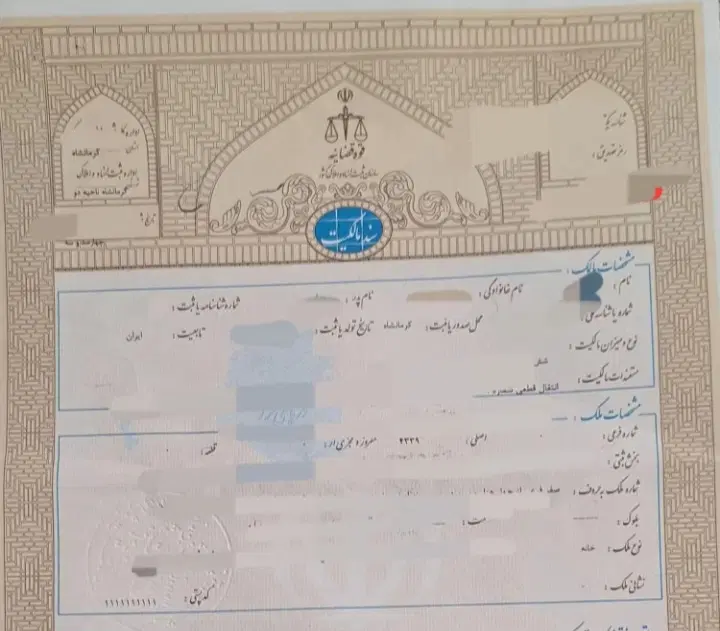 شناسه یکتا :
رمز تصدیق :
قوه قضائیه
سازمان ثبت اسناد و املاک کشور
اداره کل
استان کرمانشاه
اداره ثبت اسناد و املاک
کرمانشاه ناحیه دو
تاریخ :
سند مالکیت
مشخصات مالک :
نام : نام خانوادگی : نام پدر : شماره شناسنامه یا ثبت :
شماره یا شناسه ملی : محل صدور یا ثبت : کرمانشاه تاریخ تولد یا ثبت : تابعیت : ایران
نوع و میزان مالکیت : شش
مستندات مالکیت : انتقال قطعی شماره
مشخصات ملک :
شماره فرعی : اصلی : ۴۳۳۹ مفروز و مجزی از : قطعه :
بخش ثبتی :
شماره ملک بحروف :
بلوک :
نوع ملک : خانه
نشانی ملک :
کدپستی : ۱۱۱۱۱۱۱۱۱۱